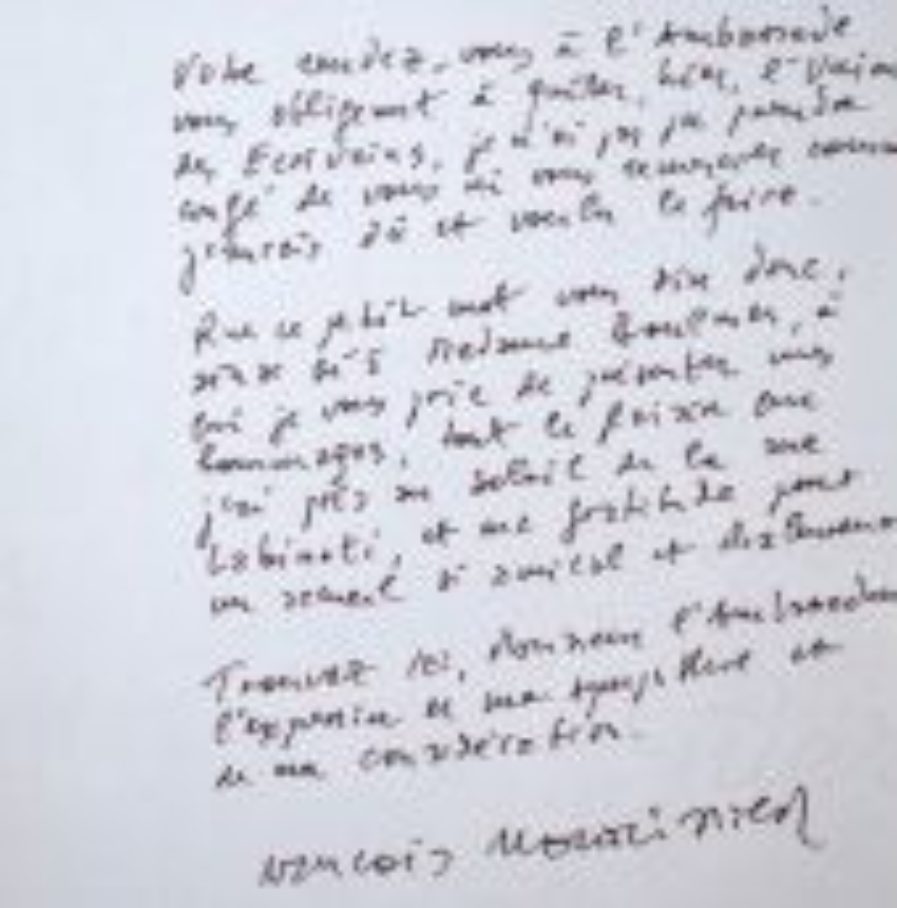 Votre rendez-vous à l'Ambassade
vous obligeant à quitter, hier, l'Union
des Ecrivains, je n'ai pas pu prendre
congé de vous ni vous remercier comme
j'aurais dû et voulu le faire.
Que ce petit mot vous dise donc,
Madame à
qui je vous prie de présenter mes
hommages, tout le plaisir que
j'ai pris au soleil de la rue
et ma gratitude pour
un accueil si amical et
Trouvez ici, Monsieur l'Ambassadeur
l'expression de ma sympathie et
de ma considération.